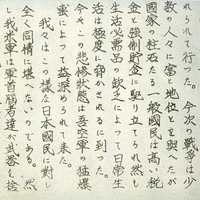 れられて行った。今次の戦争は少
数の人々に富と地位とを與へたが
國家の柱石たる一般國民は高い税
金と強制貯金に契り立てられ然も
生活必需品の缺乏によって日常生
活は極度に脅かされるに到った。
今この悲惨狀態は吾空軍の猛爆
撃によって益深められて来た。
我々はこの様な日本國民に對し
全く同情に堪へないのである。然
し我米軍は軍首腦者達が武器を捨